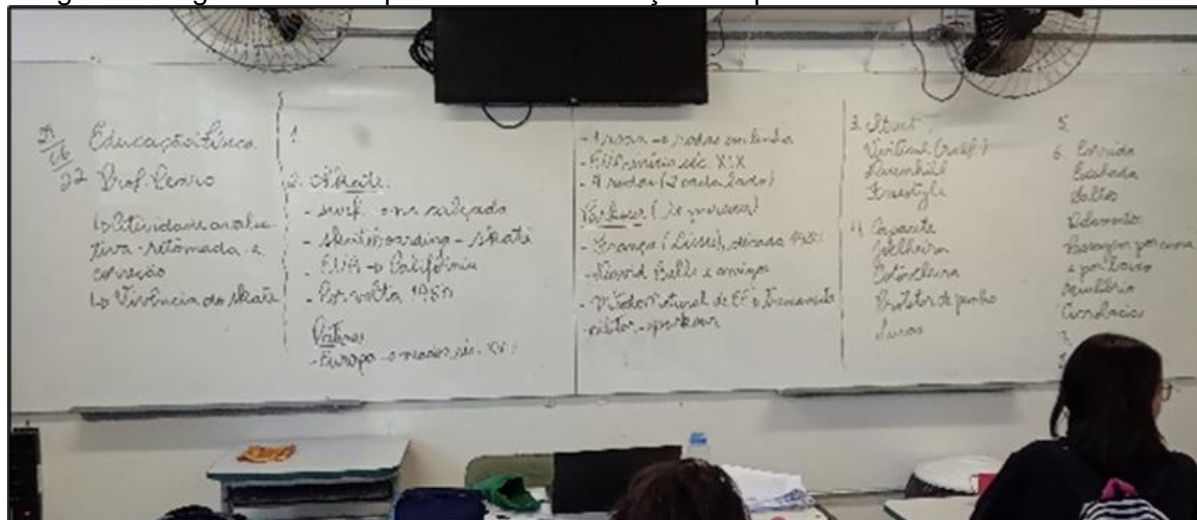 Educação Física
Prof. Pedro
Atividade avalia-
tiva - retomada e
correção
Vivência do skate
1.
2. Skate:
- surf
- skateboarding - skate
- EUA → Califórnia
- Por volta 1950
Patines
- Europa
- rodas em linha
- EUA início séc. XIX
- 4 rodas (2 cada lado)
Parkour
- França (Lisses), década
- David Belle e amigos
- Método Natural de EF e treinamento
militar - parkour
3. Street
Vertical (half)
Downhill
Freestyle
4. Capacete
Joelheira
Cotoveleira
Protetor de punho
Luvas
5.
6. Corrida
Escalada
Saltos
Rolamentos
Passagem por cima
e por baixo
Equilíbrio
Acrobacias
7.